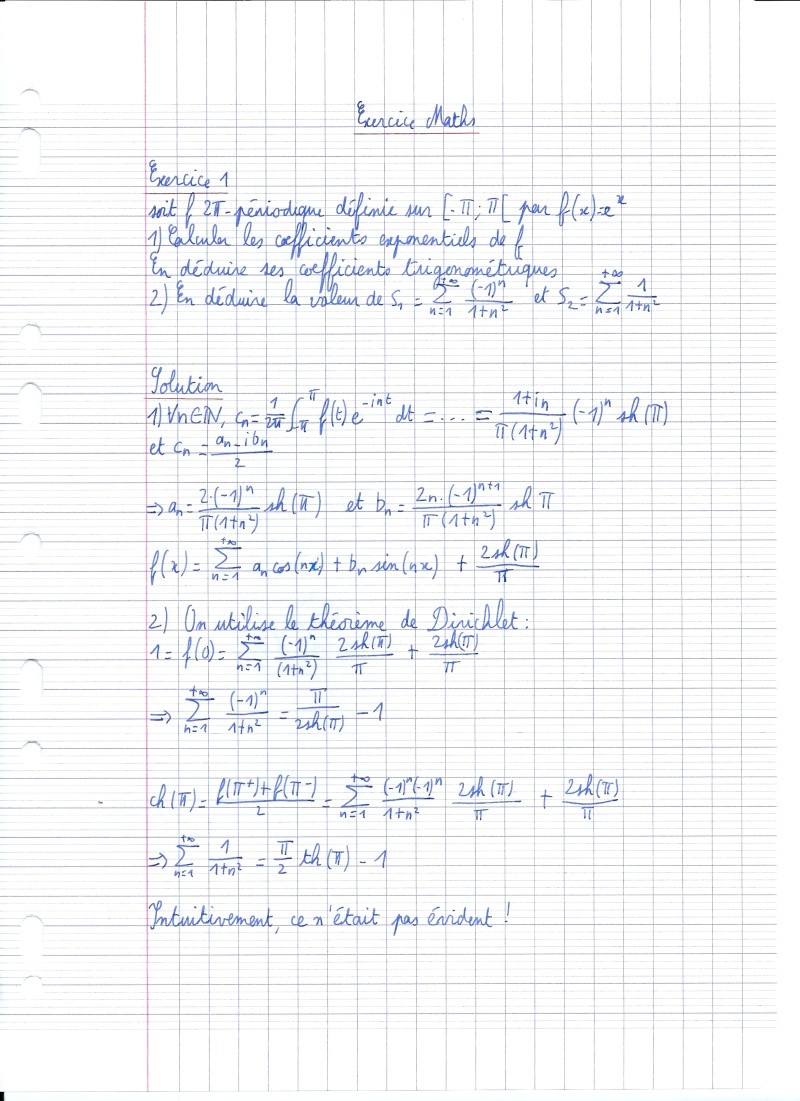 Exercice Maths
Exercice 1
soit f 2π-périodique définie sur [-π; π[ par f(x)=e^x
1) Calculer les coefficients exponentiels de f
En déduire ses coefficients trigonométriques
2) En déduire la valeur de S₁ = ∑_{n=1}^{+∞} (-1)^n/(1+n²) et S₂ = ∑_{n=1}^{+∞} 1/(1+n²)
Solution
1) ∀n∈ℕ, cn = 1/(2π) ∫_{-π}^{π} f(t) e^{-int} dt = ... = (1+in)/(π(1+n²)) (-1)^n sh(π)
et cn = (an - ibn)/2
⇒ an = 2·(-1)^n/(π(1+n²)) sh(π) et bn = 2n·(-1)^{n+1}/(π(1+n²)) sh π
f(x) = ∑_{n=1}^{+∞} an cos(nx) + bn sin(nx) + 2sh(π)/π
2) On utilise le théorème de Dirichlet :
1 = f(0) = ∑_{n=1}^{+∞} (-1)^n/(1+n²) 2sh(π)/π + 2sh(π)/π
⇒ ∑_{n=1}^{+∞} (-1)^n/(1+n²) = π/(2sh(π)) - 1
ch(π) = (f(π⁺)+f(π⁻))/2 = ∑_{n=1}^{+∞} (-1)^n(-1)^n/(1+n²) 2sh(π)/π + 2sh(π)/π
⇒ ∑_{n=1}^{+∞} 1/(1+n²) = π/2 th(π) - 1
Intuitivement, ce n'était pas évident !